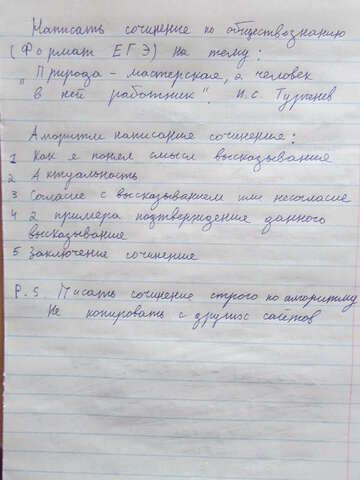 Написать сочинение по обществознанию
(Формат ЕГЭ) на тему:
"Природа - мастерская, а человек
в ней работник". И.С. Тургенев
Алгоритм написания сочинения:
1 Как я понял смысл высказывания
2 Актуальность
3 Согласие с высказыванием или несогласие
4 2 примера подтверждения данного
высказывания
5 Заключение сочинения
P.S. Писать сочинение строго по алгоритму
Не копировать с других сайтов